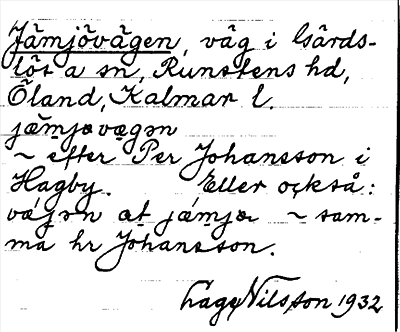 Jämjövägen, väg i Gärds-
lösa sn, Runstens hd,
Öland, Kalmar l.
jæmjøvægən
~ efter Per Johansson i
Hagby. Eller också:
vájən at jǽmjø ~ sam-
ma hr Johansson.
Lage Nilsson 1932